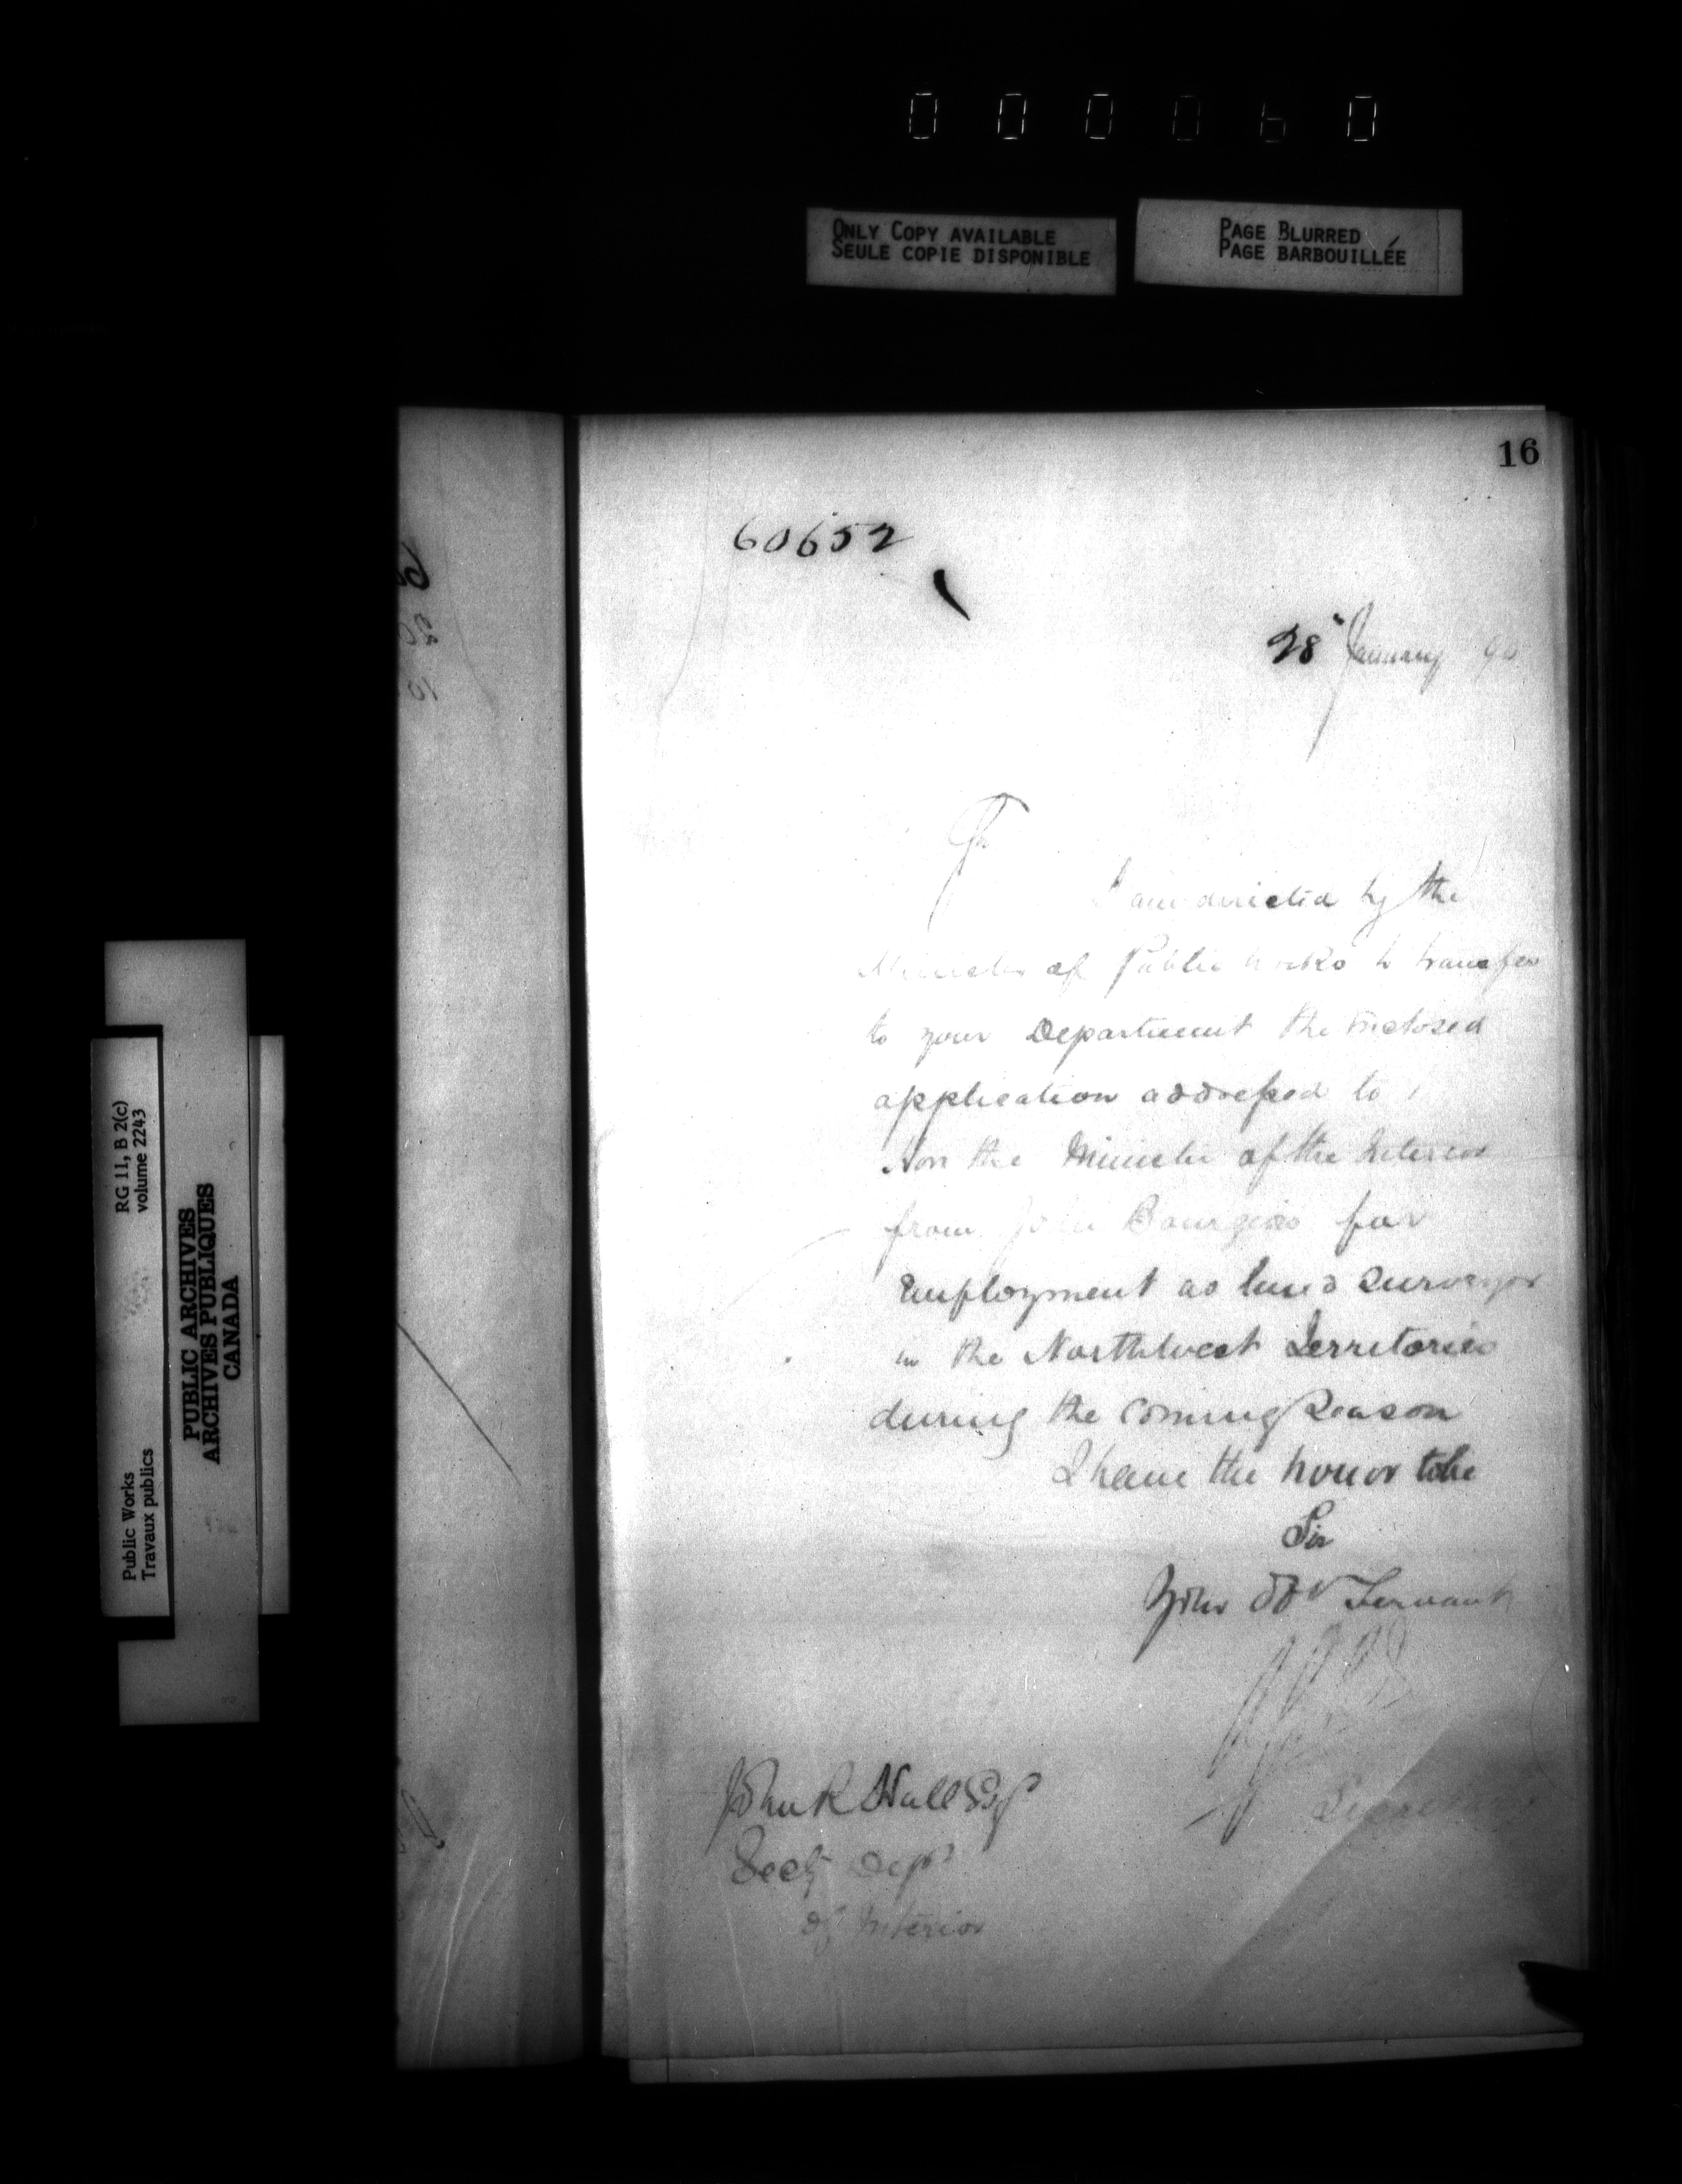 000060
ONLY COPY AVAILABLE
SEULE COPIE DISPONIBLE
PAGE BLURRED
PAGE BARBOUILLÉE
16
60652
28 January 90
Sir
I am directed by the
Minister of Public Works to transfer
to your Department the enclosed
application addressed to
Hon the Minister of the Interior
from John Bourgeois for
Employment as land Surveyor
in the Northwest Territories
during the coming Season
I have the honor to be
Sir
Your Obt Servant
Secretary
John R Hall Esq
Secty Dept
of Interior
RG 11, B 2(c)
volume 2243
Public Works
Travaux publics
PUBLIC ARCHIVES
ARCHIVES PUBLIQUES
CANADA